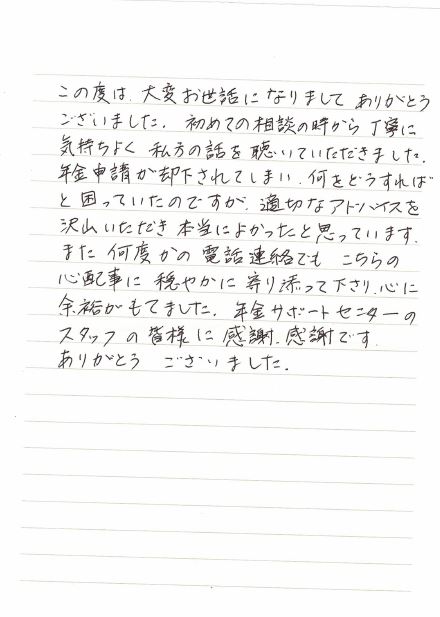 この度は、大変お世話になりまして ありがとう
ございました。初めての相談の時から 丁寧に
気持ちよく 私方の話を聴いていただきました。
年金申請が却下されてしまい、何をどうすれば
と困っていたのですが、適切なアドバイスを
沢山いただき 本当によかったと思っています。
また 何度かの 電話連絡でも こちらの
心配事に 穏やかに 寄り添って下さり、心に
余裕がもてました。 年金サポートセンターの
スタッフの皆様に 感謝、感謝です。
ありがとう ございました。